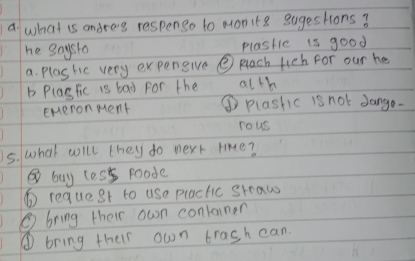 4. what is andre's response to monita sugestions?
he says to
a. plastic very expensive
b plastic is bad for the
emeronment
c plastic is good
for our he
alth
d plastic is not dange-
rous
5. what will they do next time?
a buy less foode
b request to use plactic straw
c bring their own container
d bring their own trash can.